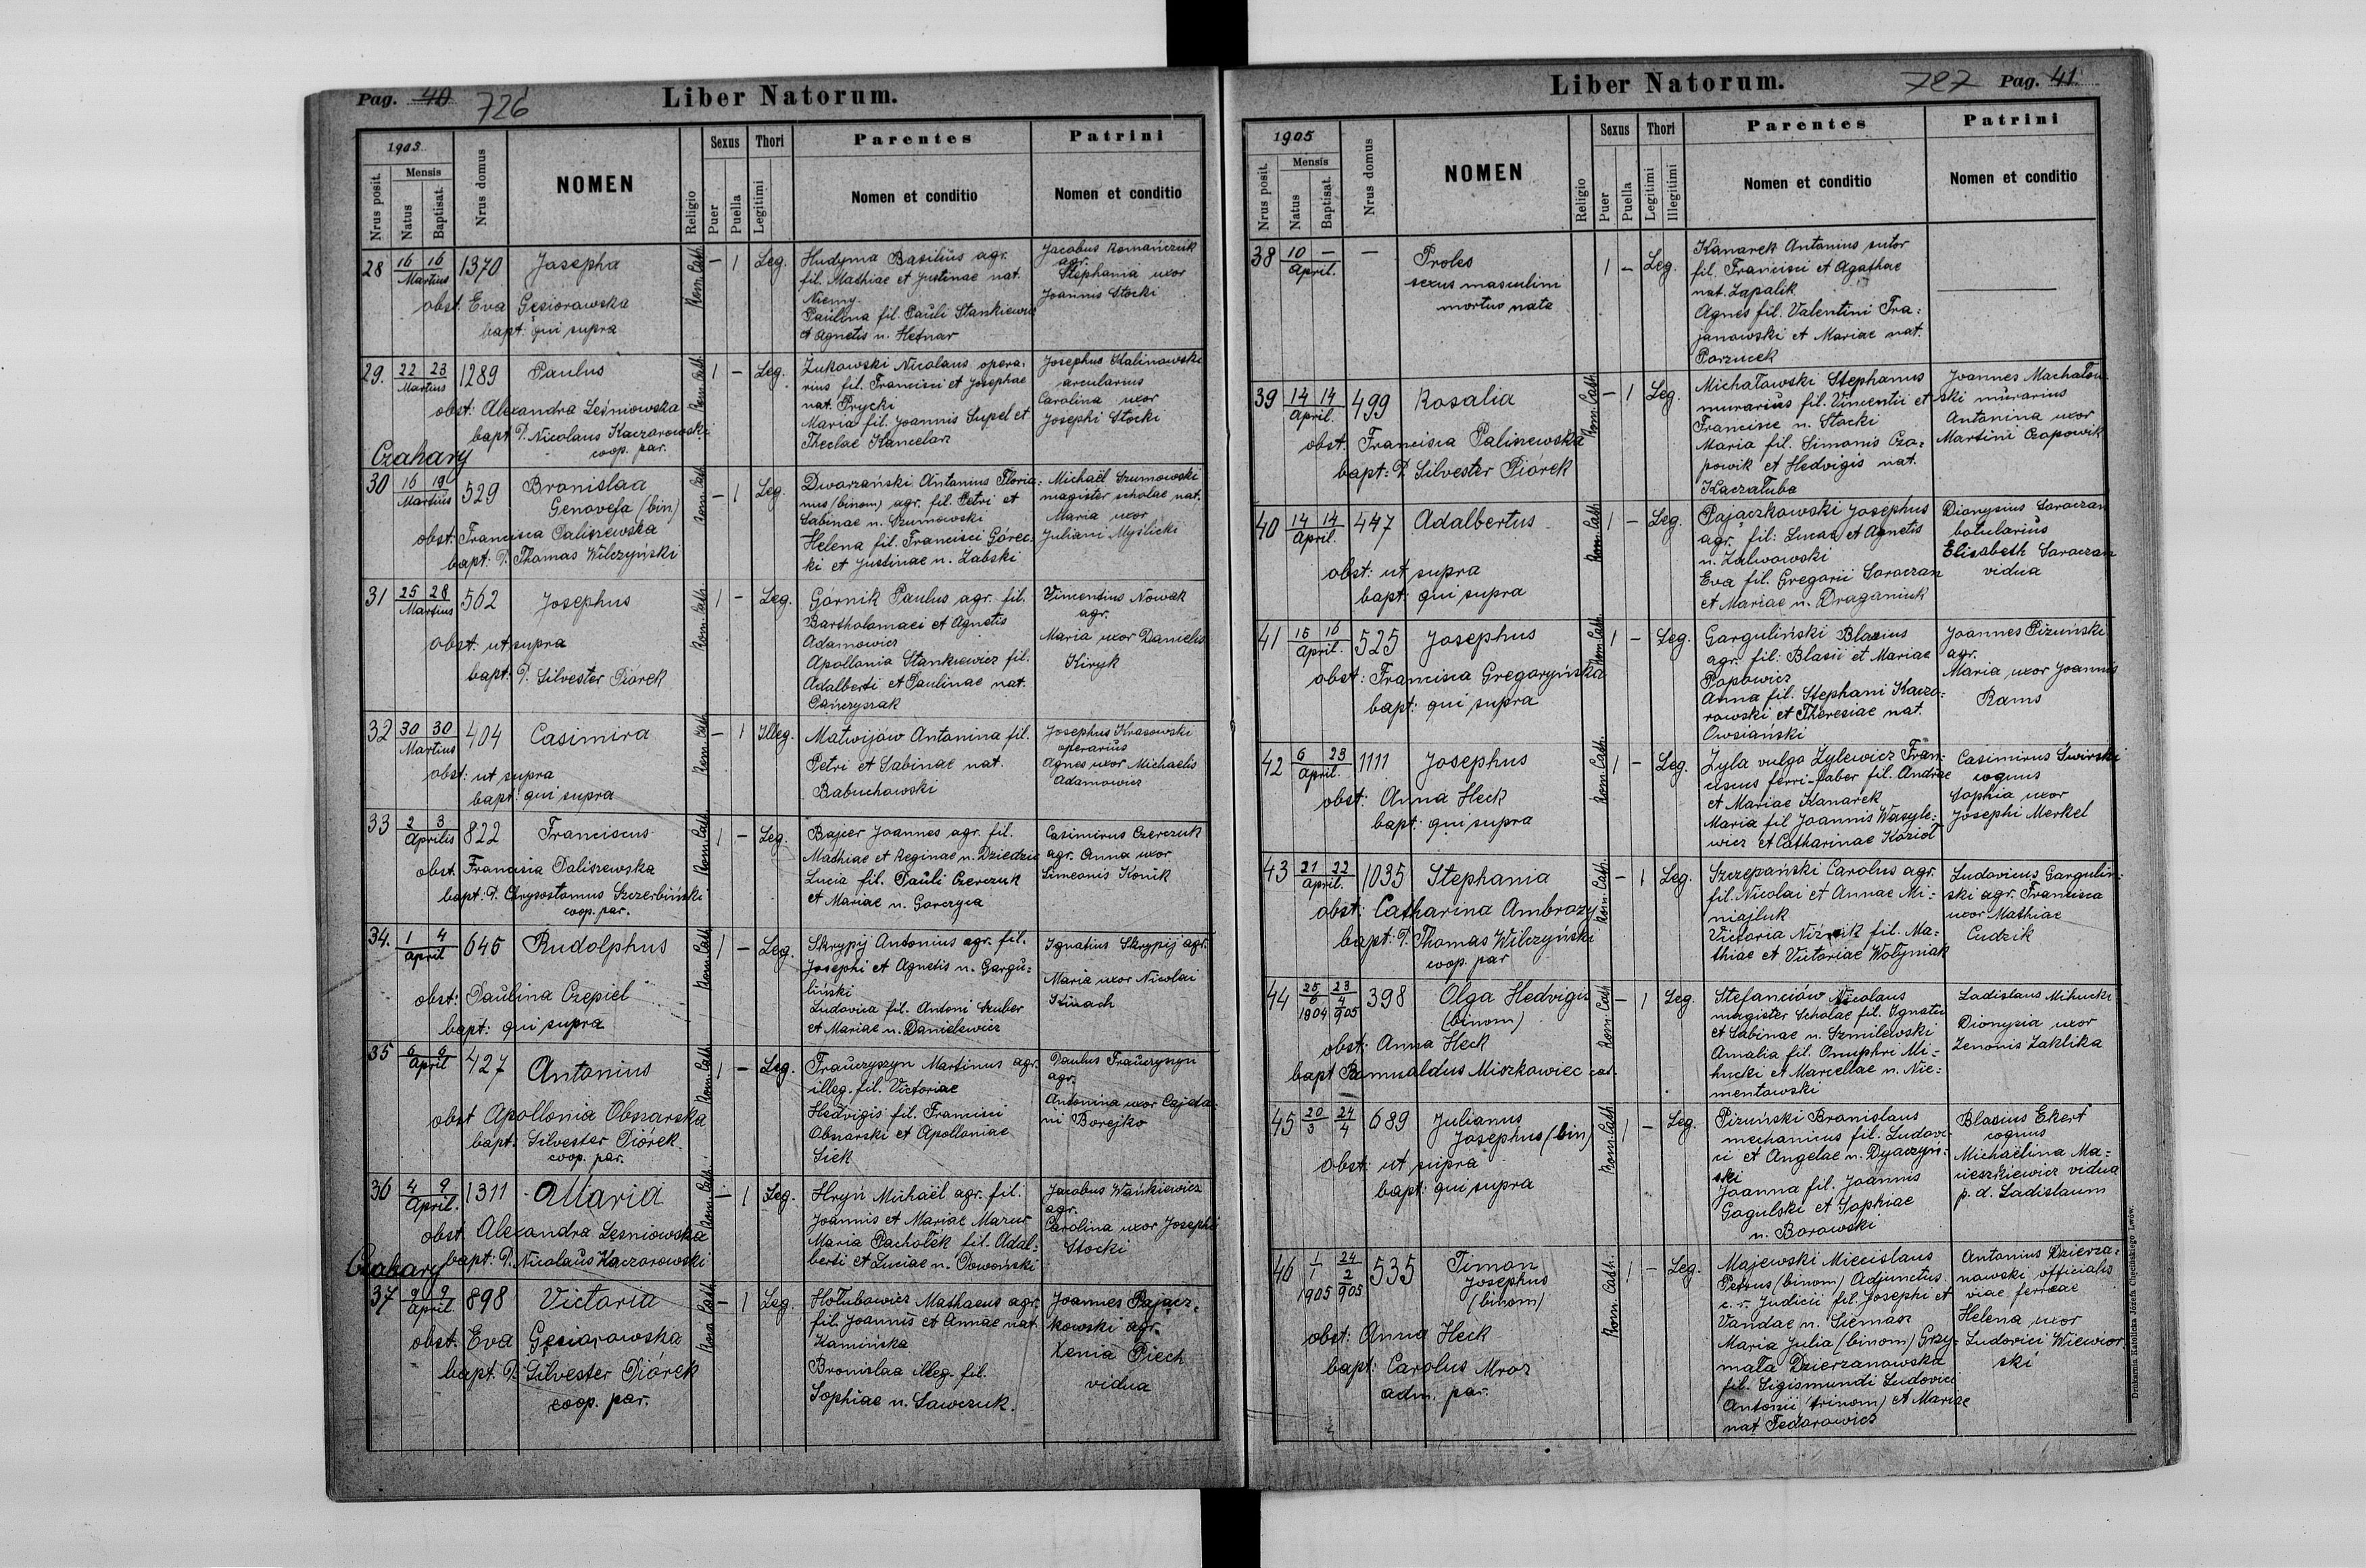 Pag. 40 726
Liber Natorum.
1903
Nrus posit.
Mensis
Natus
Baptisat.
Nrus domus
NOMEN
Religio
Sexus
Puer
Puella
Thori
Legitimi
Parentes
Nomen et conditio
Patrini
Nomen et conditio
28 16 16 Martius 1370 Josepha Rom. Cath. – 1 Leg.
obst. Eva Gęsiorowska
bapt. qui supra
Hudyma Basilius agr.
fil. Mathiae et Justinae nat.
Niemy
Paulina fil. Pauli Stankiewicz
et Agnetis n. Hetnar
Jacobus Romańczuk
agr.
Stephania uxor
Joannis Stocki
29. 22 23 Martius 1289 Paulus Rom. Cath. 1 – Leg.
obst: Alexandra Leśniowska
bapt P. Nicolaus Kaczorowski
coop. par.
Żukowski Nicolaus opera-
rius fil. Francisci et Josephae
nat. Prycki
Maria fil. Joannis Supel et
Theclae Kancelarz
Josephus Kalinowski
arcularius
Carolina uxor
Josephi Stocki
Czahary
30 16 19 Martius 529 Bronislaa
Genovefa (bin) Rom. Cath. – 1 Leg.
obst: Francisca Paliszewska
bapt: P. Thomas Wilczyński
Dworzański Antonius Floria-
nus (binom) agr. fil. Petri et
Sabinae n. Szumowski
Helena fil. Francisci Górec-
ki et Justinae n. Żabski
Michaël Szumowski
magister scholae nat.
Maria uxor
Juliani Myślicki
31 25 28 Martius 562 Josephus Rom. Cath. 1 – Leg.
obst. ut supra
bapt: P. Silvester Piórek
Górnik Paulus agr. fil.
Bartholomaei et Agnetis
Adamowicz
Apollonia Stankiewicz fil.
Adalberti et Paulinae nat.
Pańczyszak
Vincentius Nowak
agr.
Maria uxor Danielis
Kiryk
32 30 30 Martius 404 Casimira Rom. Cath. – 1 Illeg.
obst: ut supra
bapt: qui supra
Matwijów Antonina fil.
Petri et Sabinae nat.
Babuchowski
Josephus Krasowski
operarius
Agnes uxor Michaelis
Adamowicz
33 2 3 Aprilis 822 Franciscus Rom. Cath. 1 – Leg.
obst. Francisca Paliszewska
bapt. P. Chrysostomus Szczerbiński
coop. par.
Bajcer Joannes agr. fil.
Mathiae et Reginae n. Dziedzic
Lucia fil. Pauli Czerczuk
et Mariae n. Gorczyca
Casimirus Czerczuk
agr. Anna uxor
Simeonis Konik
34. 1 4 April 645 Rudolphus Rom. Cath. 1 – Leg.
obst: Paulina Czepiel
bapt: qui supra
Skrypij Antonius agr. fil.
Josephi et Agnetis n. Gargu-
liński
Ludovica fil. Antoni Szuber
et Mariae n. Danielewicz
Ignatius Skrypij agr.
Maria uxor Nicolai
35 6 9 April 427 Antonius Rom. Cath. 1 – Leg.
obst Apollonia Obszarska
bapt. Silvester Piórek
coop. par.
Frauczyszyn Martinus agr.
illeg. fil. Victoriae
Hedvigis fil. Francisci
Obszarski et Apolloniae
Siek
Paulus Frauczyszyn
agr.
Antonina uxor Cajeta-
ni Borejko
36 4 9 April. 1311 Maria Rom. Cath. – 1 Leg.
obst. Alexandra Leśniowska
Czahary bapt: P. Nicolaus Kaczorowski
Hryń Michaël agr. fil.
Joannis et Mariae Mazur
Maria Pachołek fil. Adal-
berti et Luciae n. Dowoński
Jacobus Wańkiewicz
agr.
Carolina uxor Josephi
Stocki
37 9 9 April. 898 Victoria Rom. Cath. – 1 Leg.
obst. Eva Gęsiorowska
bapt. P. Silvester Piórek
coop. par.
Hołubowicz Mathaeus agr.
fil. Joannis et Annae nat.
Kamińska
Bronislaa illeg. fil.
Sophiae n. Sawczuk.
Joannes Pajacz-
kowski agr.
Xenia Piech
vidua
Liber Natorum.
727 Pag. 41
1905
Nrus posit.
Mensis
Natus
Baptisat.
Nrus domus
NOMEN
Religio
Sexus
Puer
Puella
Thori
Legitimi
Illegitimi
Parentes
Nomen et conditio
Patrini
Nomen et conditio
38 10 – April. – Proles
sexus masculini
mortus nata 1 – Leg.
Kanarek Antonius sutor
fil. Francisci et Agathae
nat. Łapalik
Agnes fil. Valentini Tra-
janowski et Mariae nat.
Porzucek
39 14 14 April. 499 Rosalia Rom. Cath. – 1 Leg.
obst. Francisca Paliszewska
bapt: P. Silvester Piórek
Michałowski Stephanus
murarius fil. Vincentii et
Franciscae n. Stocki
Maria fil. Simonis Cza-
powik et Hedvigis nat.
Kaczałuba
Joannes Machałow-
ski murarius
Antonina uxor
Martini Czapowik
40 14 14 April. 447 Adalbertus Rom. Cath. 1 – Leg.
obst: ut supra
bapt: qui supra
Pajączkowski Josephus
agr. fil: Lucae et Agnetis
n. Zalwowski
Eva fil. Gregorii Soroczan
et Mariae n. Draganiuk
Dionysius Soroczan
botularius
Elisabeth Soroczan
vidua
41 15 16 April. 525 Josephus Rom. Cath. 1 – Leg.
obst: Francisca Gregoryńska
bapt: qui supra
Garguliński Blasius
agr. fil: Blasii et Mariae
Popowicz
Anna fil. Stephani Kaczo-
rowski et Theresiae nat.
Owsiański
Joannes Pizuński
agr.
Maria, uxor Joannis
Rams
42 6 23 April. 1111 Josephus Rom. Cath. 1 – Leg.
obst: Anna Heck
bapt: qui supra
Żyła vulgo Żylewicz Fran-
ciscus ferri-faber fil. Andrae
et Mariae Kanarek
Maria fil Joannis Wasyle-
wicz et Catharinae Kozioł
Casimirus Świrski
coquus
Sophia uxor
Josephi Merkel
43 21 22 April. 1035 Stephania Rom. Cath. – 1 Leg.
obst: Catharina Ambrozy
bapt: P. Thomas Wilczyński
coop. par
Szczepański Carolus agr.
fil. Nicolai et Annae Mi-
niajluk
Victoria Niżnik fil. Ma-
thiae et Victoriae Wołyniak
Ludovicus Gargulin-
ski agr. Francisca
uxor Mathiae
Cudzik
44 25 6 1904 23 4 905 398 Olga Hedvigis
(binom) Rom. Cath – 1 Leg.
obst: Anna Heck
bapt Romualdus Miszkowiec cat.
Stefanciów Nicolaus
magister Scholae fil. Ignatii
et Sabinae n. Szmilewski
Amalia fil. Onuphri Mi-
hucki et Marcellae n. Nie-
mentowski
Ladislaus Mihucki
Dionysia uxor
Zenonis Zaklika
45 20 3 24 4 689 Julianus
Josephus (bin) Rom. Cath. 1 – Leg.
obst: ut supra
bapt: qui supra
Pizuński Bronislaus
mechanicus fil. Ludovi-
ci et Angelae n. Dyaczyń-
ski
Joanna fil. Joannis
Gogulski et Sophiae
n. Borowski
Blasius Ekert
coquus
Michaëlina Ma-
cieszkiewicz vidua
p. d. Ladislaum
46 1 1 1905 24 2 905 535 Timon
Josephus
(binom) Rom. Cath. 1 – Leg.
obst: Anna Heck
bapt: Carolus Mroz
adm. par.
Majewski Miecislaus
Petrus (binom) Adjunctus
c. r. Judicii fil. Josephi et
Vandae n. Siemasz
Maria Julia (binom) Grzy-
mała Dzierzanowska
fil. Sigismundi Ludovici
Antonii (trinom) et Mariae
nat Fedorowicz
Antonius Dzierza-
nowski officialis
viae ferreae
Helena uxor
Ludovici Wiewior-
ski
Drukarnia Katolicka Józefa Chęcińskiego Lwów.